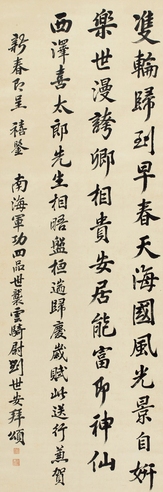 雙輪歸到早春天海國風光景自妍
樂世漫誇卿相貴安居能富即神仙
西澤喜太郎先生相晤盤桓遄歸慶歲賦此送行並賀
新春即呈 禧鑒 南海軍功四品世襲雲騎尉劉世安拜頌